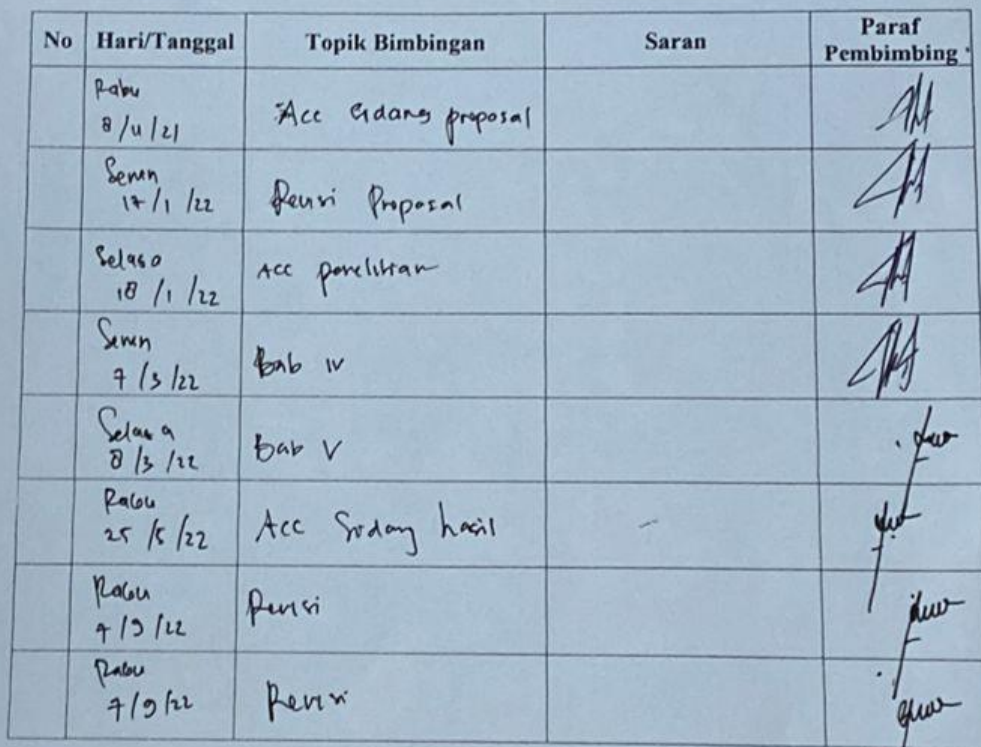 No Hari/Tanggal Topik Bimbingan Saran Paraf Pembimbing
Rabu
8/11/21 Acc Sidang proposal
Senin
17/1/22 Revisi Proposal
Selasa
18/1/22 Acc penelitian
Senin
7/3/22 Bab IV
Selasa
8/3/22 Bab V
Rabu
25/5/22 Acc Sidang hasil
Rabu
7/9/22 Revisi
Rabu
7/9/22 Revisi